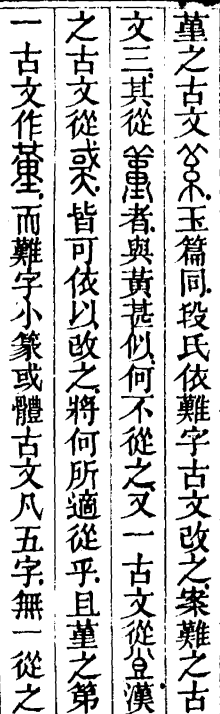 堇之古文玉篇同段氏依難字古文改之案難之古
文三其從者與黃甚似何不從之又一古文從㿝漢
之古文從或大皆可依以改之將何所適從乎且堇之第
一古文作而難字小篆或體古文凡五字無一從之